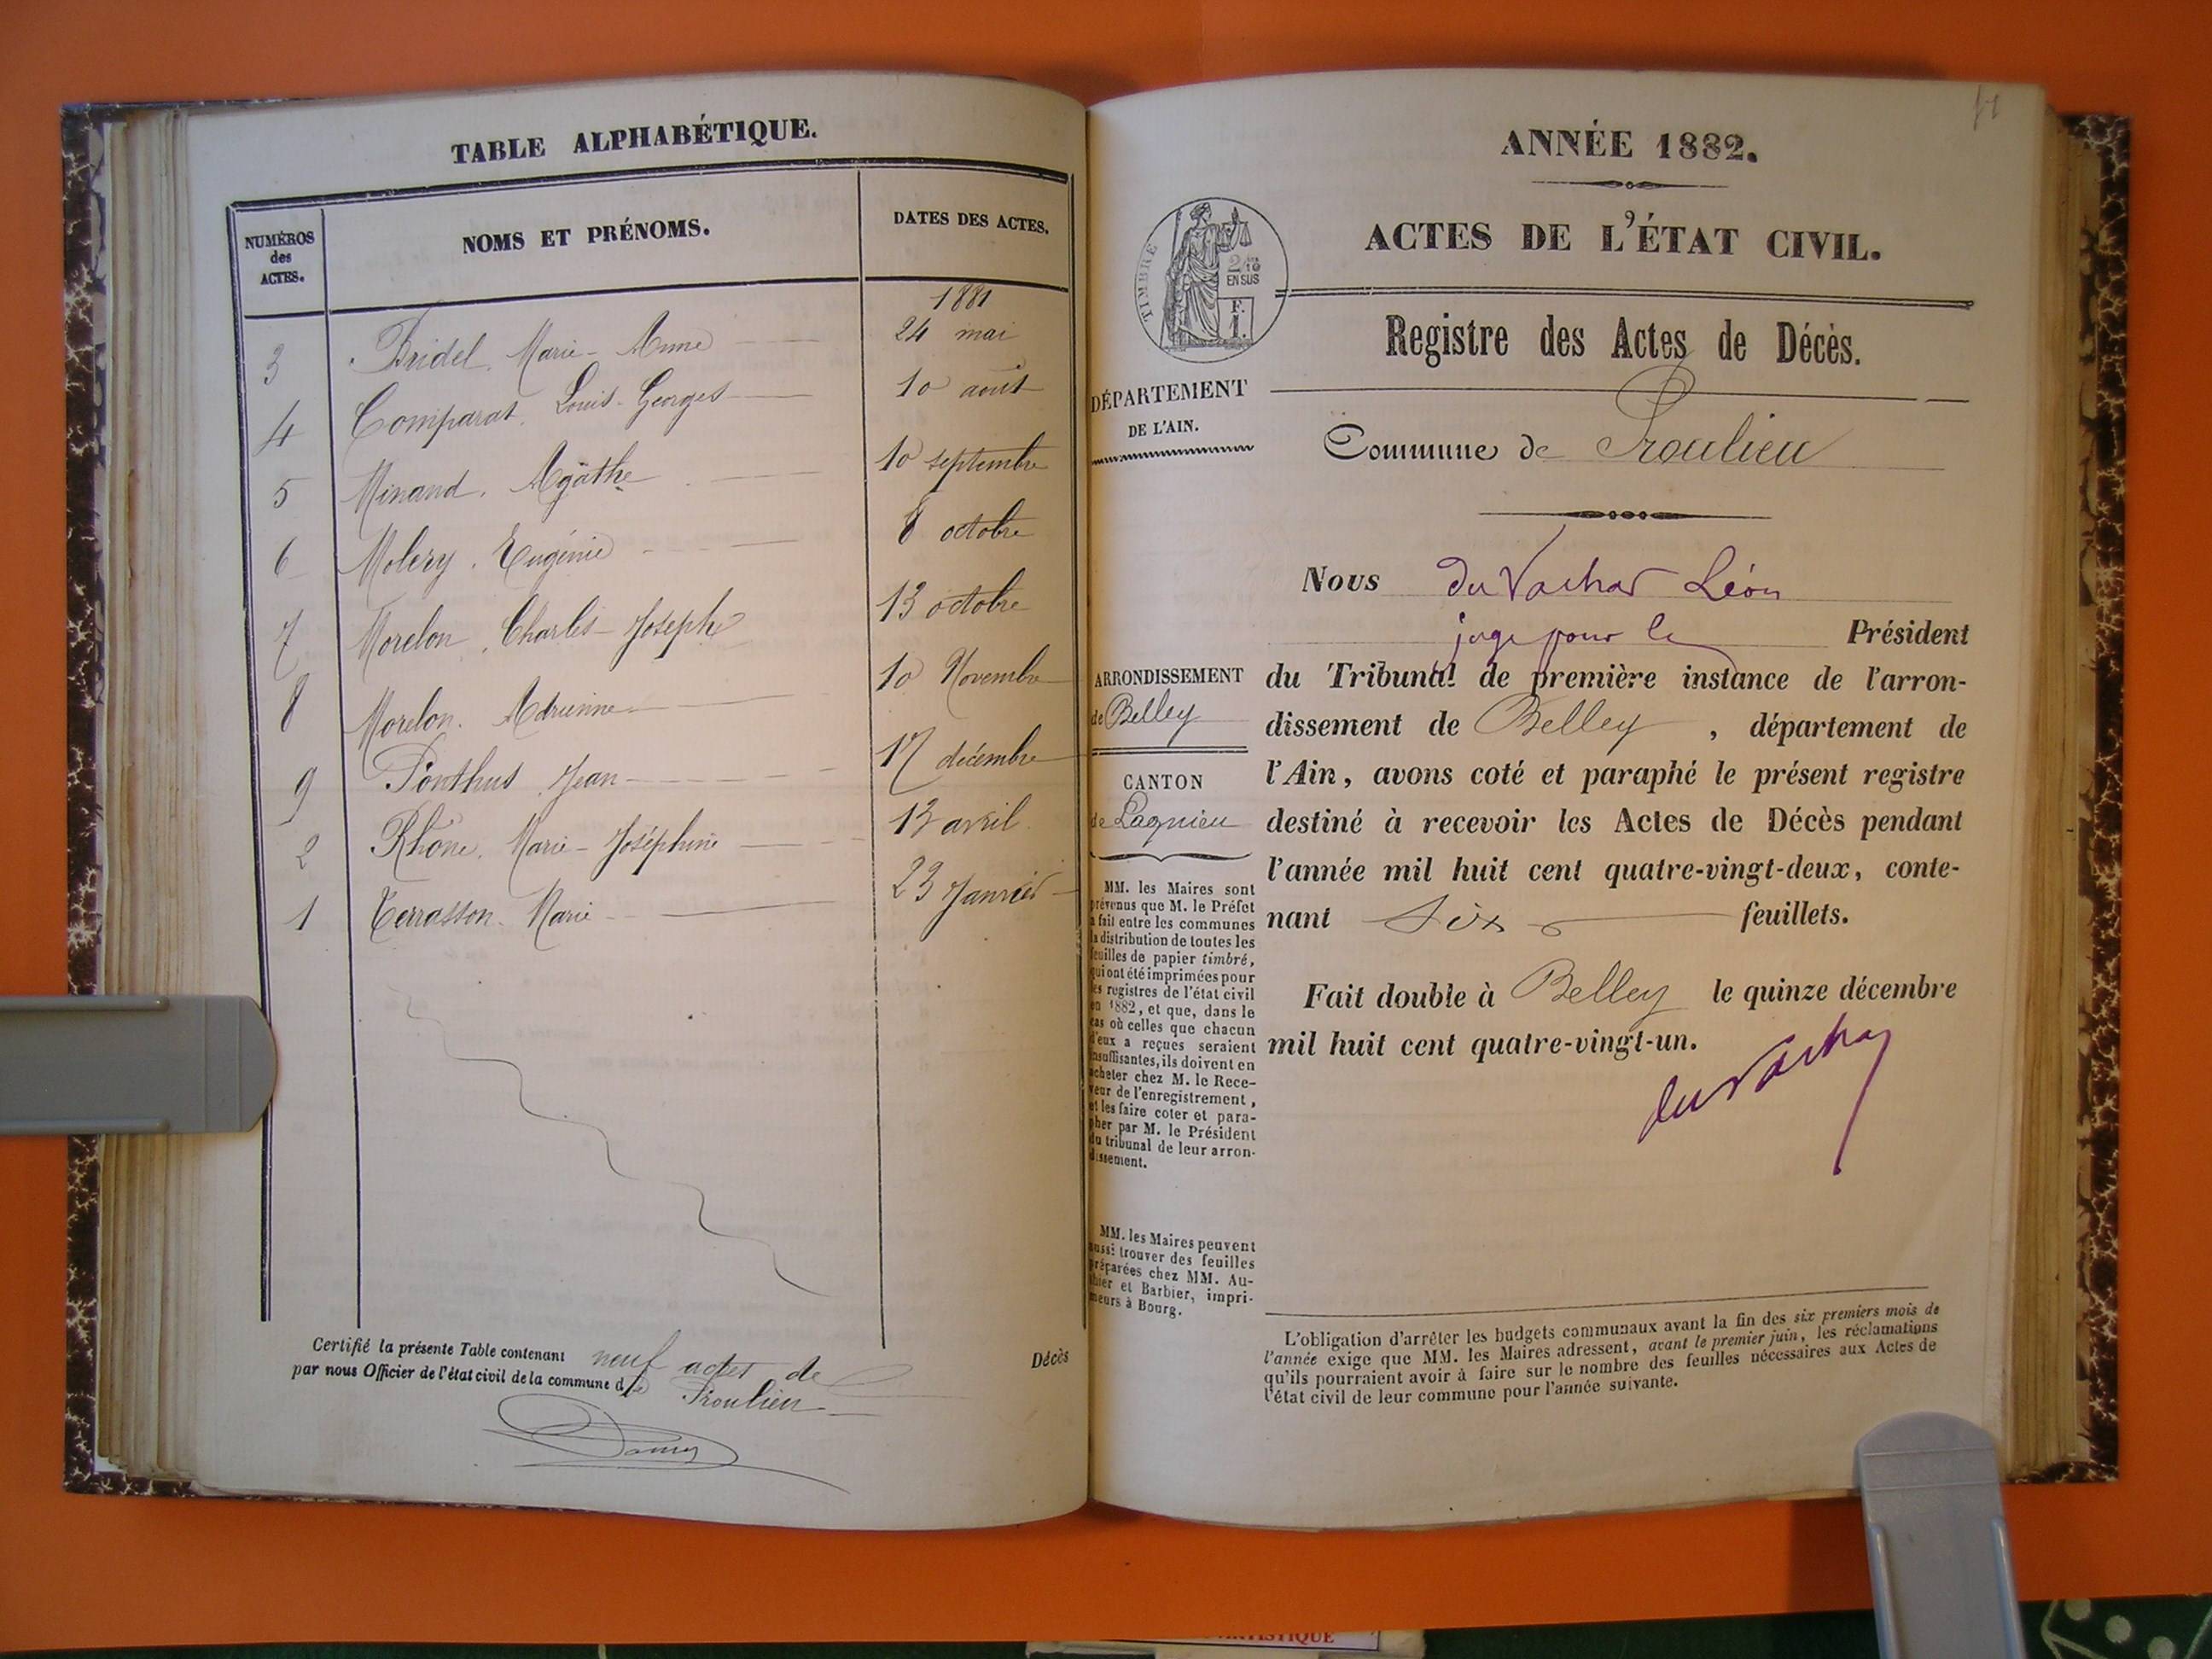 TABLE ALPHABÉTIQUE.
NUMÉROS
des
ACTES.
NOMS ET PRÉNOMS.
DATES DES ACTES.
1881
3 Bridel. Marie-Anne 24 mai
4 Comparat. Louis-Georges 10 août
5 Minand. Agathe 10 septembre
6 Molery. Eugénie 8 octobre
7 Morelon. Charles-Joseph 13 octobre
8 Morelon. Adrienne 10 Novembre
9 Ponthus. Jean 17 décembre
2 Rhône. Marie-Joséphine 13 avril
1 Terrasson. Marie 23 Janvier
Certifié la présente Table contenant neuf actes de Décès
par nous Officier de l'état civil de la commune de Proulieu
ANNÉE 1882.
ACTES DE L'ÉTAT CIVIL.
TIMBRE
2/10
EN SUS
F.
1.
Registre des Actes de Décès.
DÉPARTEMENT
DE L'AIN.
Commune de Proulieu
Nous du Vachat Léon
juge pour le Président
du Tribunal de première instance de l'arron-
dissement de Belley, département de
l'Ain, avons coté et paraphé le présent registre
destiné à recevoir les Actes de Décès pendant
l'année mil huit cent quatre-vingt-deux, conte-
nant Six feuillets.
Fait double à Belley le quinze décembre
mil huit cent quatre-vingt-un.
du Vachat
ARRONDISSEMENT
de Belley
CANTON
de Lagnieu
MM. les Maires sont
prévenus que M. le Préfet
a fait entre les communes
la distribution de toutes les
feuilles de papier timbré,
qui ont été imprimées pour
les registres de l'état civil
en 1882, et que, dans le
cas où celles que chacun
d'eux a reçues seraient
insuffisantes, ils doivent en
acheter chez M. le Rece-
veur de l'enregistrement,
et les faire coter et para-
pher par M. le Président
du tribunal de leur arron-
dissement.
MM. les Maires peuvent
aussi trouver des feuilles
préparées chez MM. Au-
thier et Barbier, impri-
meurs à Bourg.
L'obligation d'arrêter les budgets communaux avant la fin des six premiers mois de
l'année exige que MM. les Maires adressent, avant le premier juin, les réclamations
qu'ils pourraient avoir à faire sur le nombre des feuilles nécessaires aux Actes de
l'état civil de leur commune pour l'année suivante.